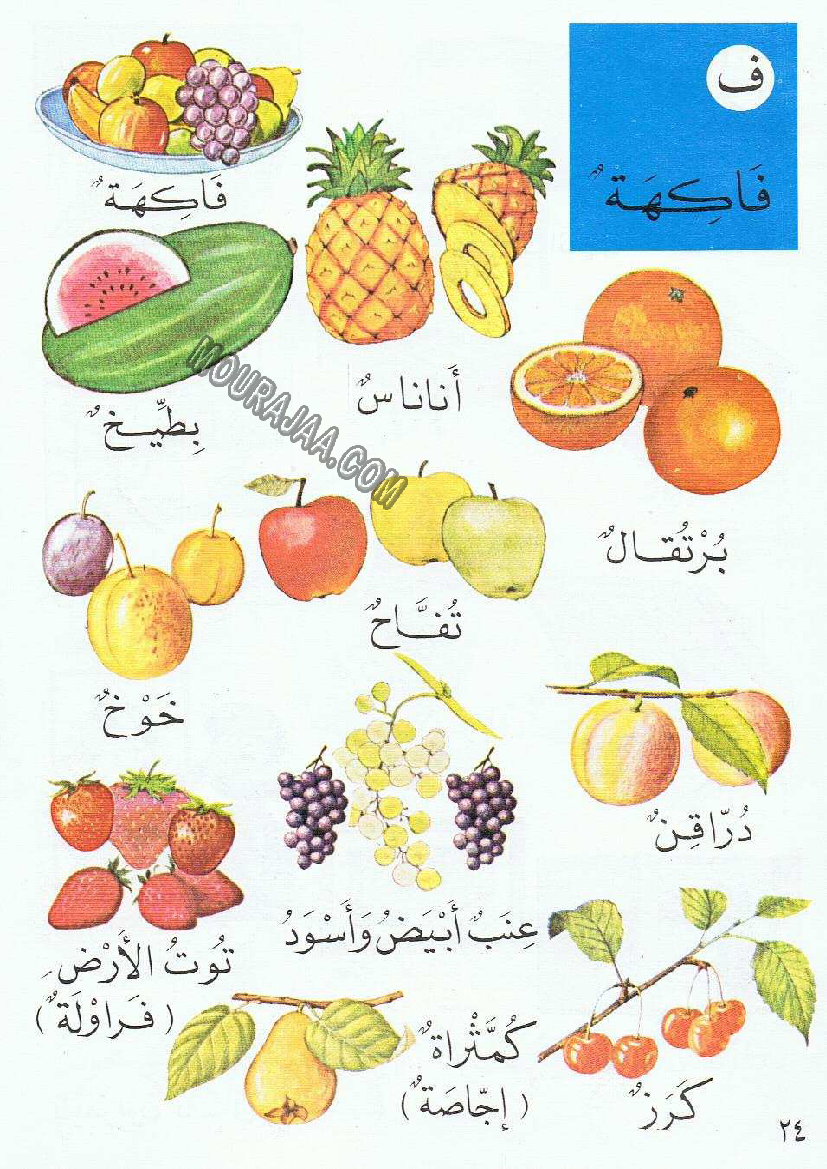 ف
فَاكِهَةٌ
فَاكِهَةٌ
أَنَانَاسٌ
بِطِّيخٌ
MOURAJAA.COM
بُرْتُقَالٌ
تُفَّاحٌ
خَوْخٌ
دُرّاقِنٌ
عِنَبٌ أَبْيَضُ وَأَسْوَدُ
تُوتُ الأَرْضِ
(فَرَاوْلَةٌ)
كُمَّثْرَاةٌ
(إجّاصَةٌ)
كَرَزٌ
٢٤